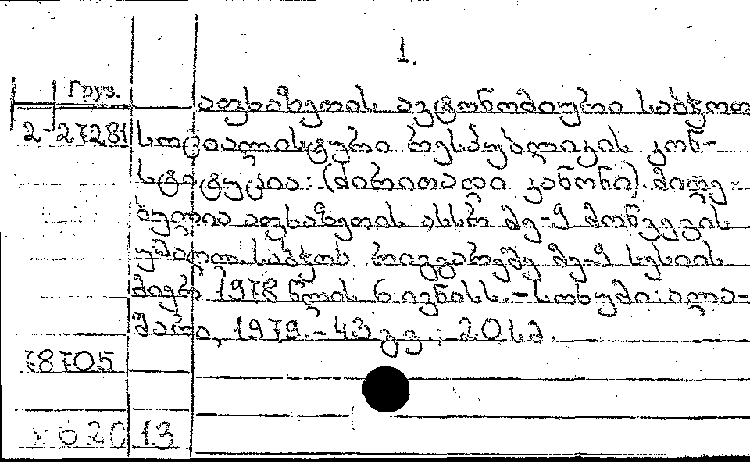 1.
Груз.
აფხაზეთის ავტონომიური საბჭოთა
2-27281 სოციალისტური რესპუბლიკის კონ-
სტიტუცია: (ძირითადი კანონი). მიღე-
ბულია აფხაზეთის ასსრ მე-9 მოწვევის
უმაღლ. საბჭოს რიგგარეშე მე-9 სესიის
მიერ 1978 წლის 6 ივნისს. - სოხუმი: ალა-
შარა, 1979. - 43 გვ.; 20 სმ.
78705
620 13